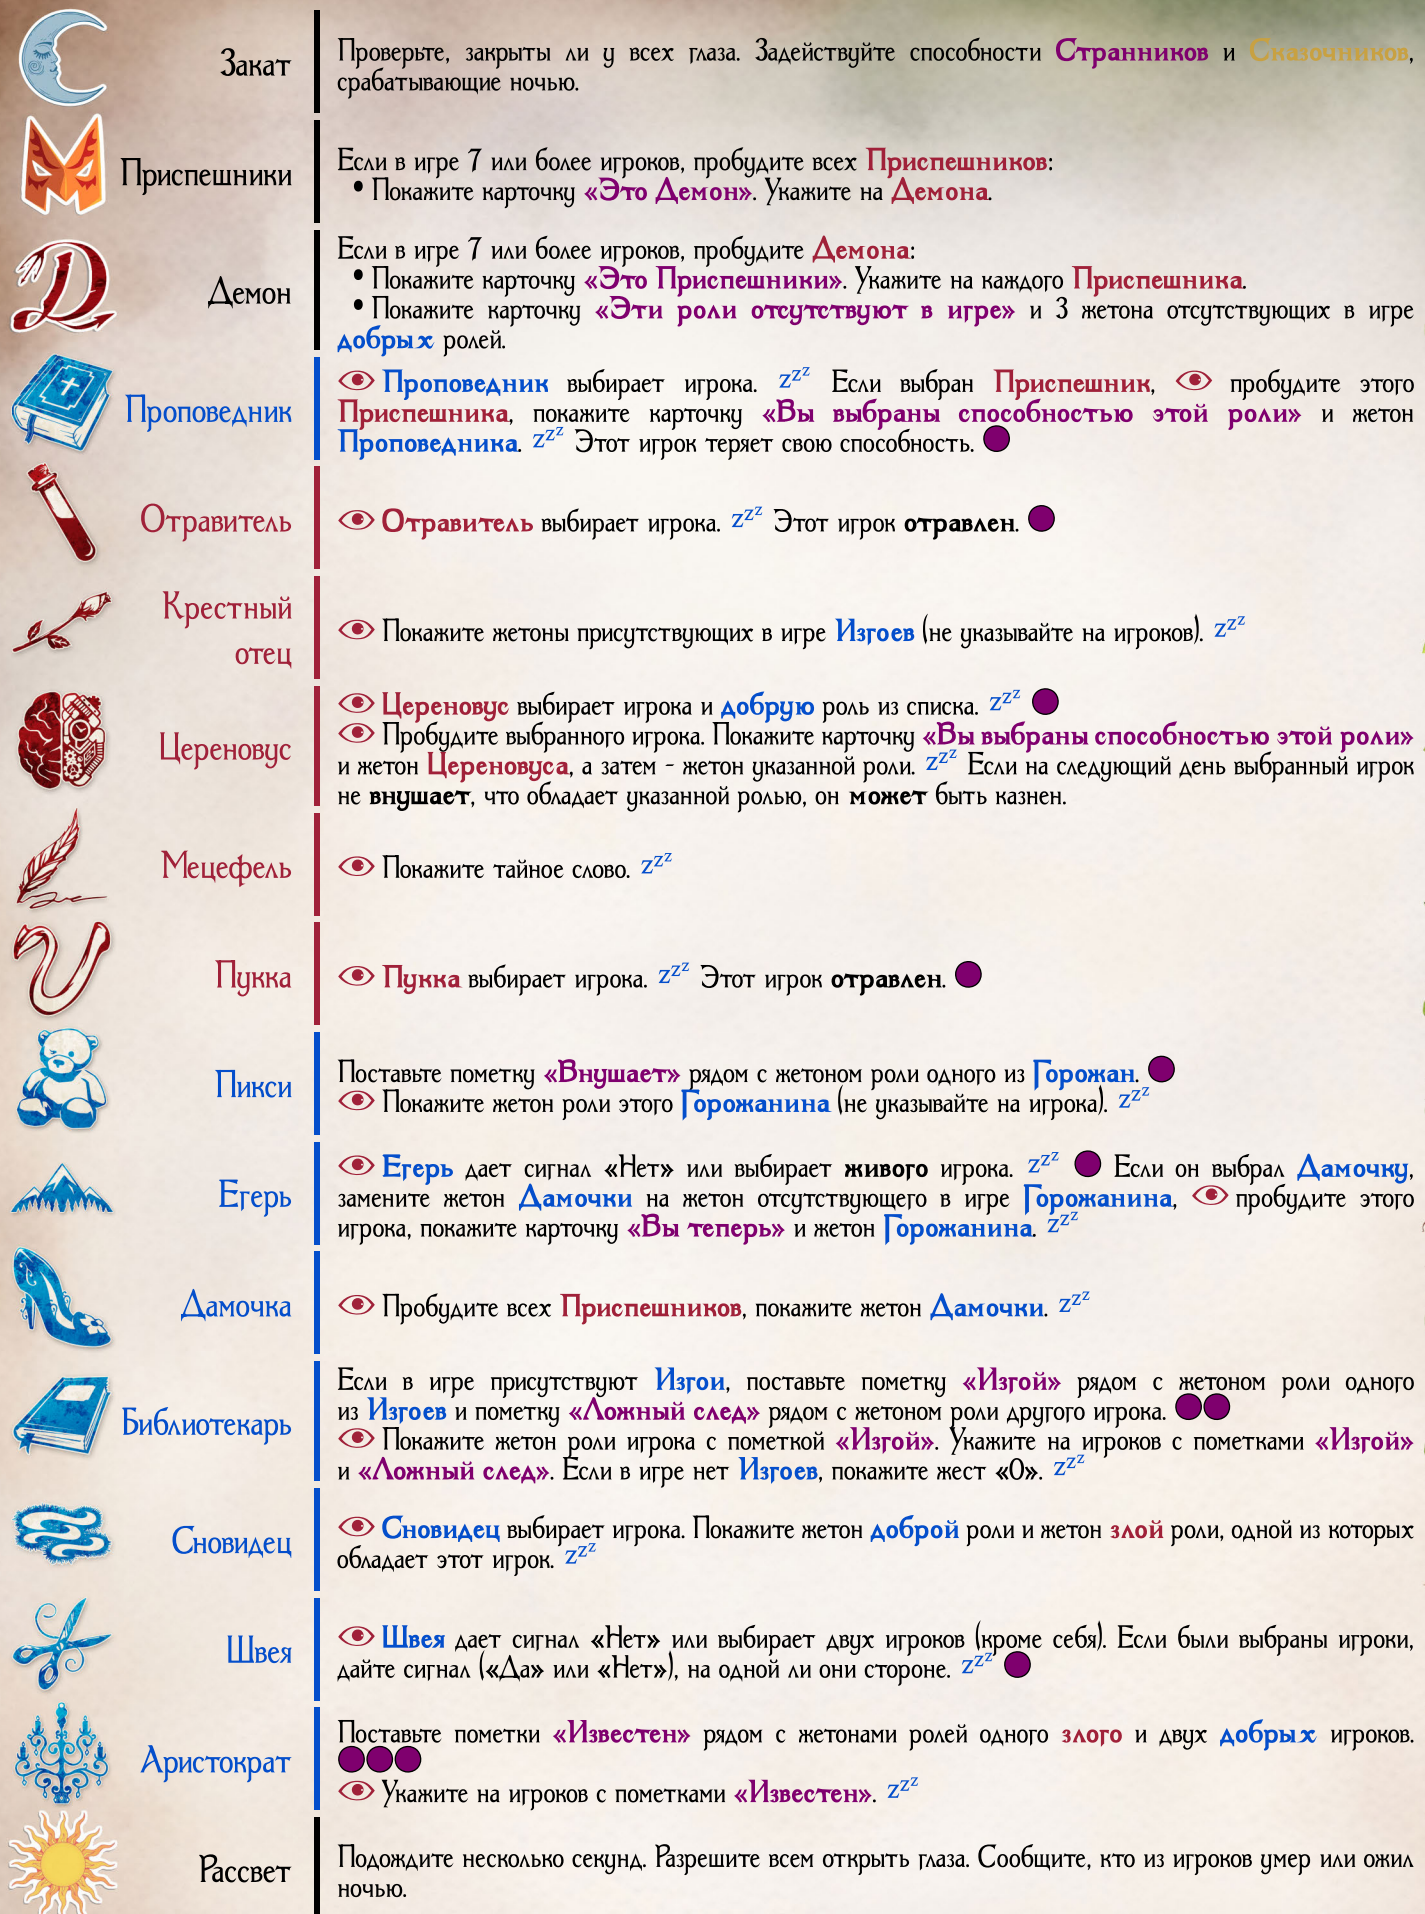 Закат
Проверьте, закрыты ли у всех глаза. Задействуйте способности Странников и Сказочников,
срабатывающие ночью.
Приспешники
Если в игре 7 или более игроков, пробудите всех Приспешников:
• Покажите карточку «Это Демон». Укажите на Демона.
Демон
Если в игре 7 или более игроков, пробудите Демона:
• Покажите карточку «Это Приспешники». Укажите на каждого Приспешника.
• Покажите карточку «Эти роли отсутствуют в игре» и 3 жетона отсутствующих в игре
добрых ролей.
Проповедник
Проповедник выбирает игрока. zzz Если выбран Приспешник, пробудите этого
Приспешника, покажите карточку «Вы выбраны способностью этой роли» и жетон
Проповедника. zzz Этот игрок теряет свою способность.
Отравитель
Отравитель выбирает игрока. zzz Этот игрок отравлен.
Крестный
отец
Покажите жетоны присутствующих в игре Изгоев (не указывайте на игроков). zzz
Цереновус
Цереновус выбирает игрока и добрую роль из списка. zzz
Пробудите выбранного игрока. Покажите карточку «Вы выбраны способностью этой роли»
и жетон Цереновуса, а затем - жетон указанной роли. zzz Если на следующий день выбранный игрок
не внушает, что обладает указанной ролью, он может быть казнен.
Мецефель
Покажите тайное слово. zzz
Пукка
Пукка выбирает игрока. zzz Этот игрок отравлен.
Пикси
Поставьте пометку «Внушает» рядом с жетоном роли одного из Горожан.
Покажите жетон роли этого Горожанина (не указывайте на игрока). zzz
Егерь
Егерь дает сигнал «Нет» или выбирает живого игрока. zzz Если он выбрал Дамочку,
замените жетон Дамочки на жетон отсутствующего в игре Горожанина, пробудите этого
игрока, покажите карточку «Вы теперь» и жетон Горожанина. zzz
Дамочка
Пробудите всех Приспешников, покажите жетон Дамочки. zzz
Библиотекарь
Если в игре присутствуют Изгои, поставьте пометку «Изгой» рядом с жетоном роли одного
из Изгоев и пометку «Ложный след» рядом с жетоном роли другого игрока.
Покажите жетон роли игрока с пометкой «Изгой». Укажите на игроков с пометками «Изгой»
и «Ложный след». Если в игре нет Изгоев, покажите жест «0». zzz
Сновидец
Сновидец выбирает игрока. Покажите жетон доброй роли и жетон злой роли, одной из которых
обладает этот игрок. zzz
Швея
Швея дает сигнал «Нет» или выбирает двух игроков (кроме себя). Если были выбраны игроки,
дайте сигнал («Да» или «Нет»), на одной ли они стороне. zzz
Аристократ
Поставьте пометки «Известен» рядом с жетонами ролей одного злого и двух добрых игроков.
Укажите на игроков с пометками «Известен». zzz
Рассвет
Подождите несколько секунд. Разрешите всем открыть глаза. Сообщите, кто из игроков умер или ожил
ночью.